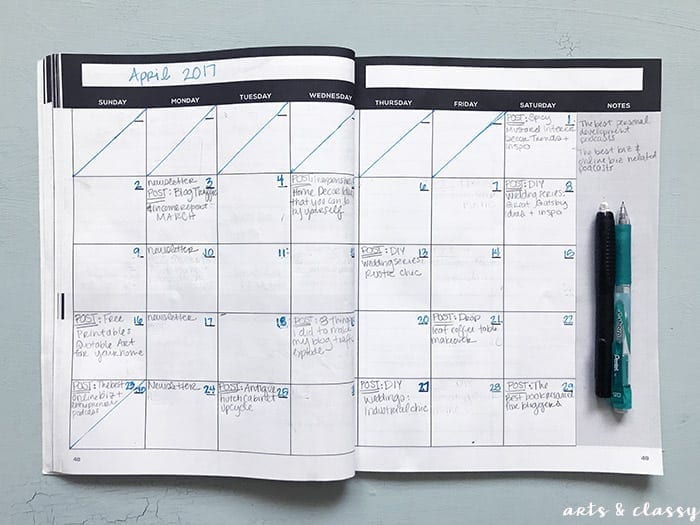 April 2017
SUNDAY MONDAY TUESDAY WEDNESDAY THURSDAY FRIDAY SATURDAY NOTES
POST: Spicy 1
Mustard Interior
Decor Trends +
inspo
The best personal
development
podcasts
The best biz &
online biz related
podcasts
2
newsletter 3
POST: Blog Traffic
& income report -
MARCH
4
POST: Inexpensive
Home Decor
that you can
by yourself
6
7
POST: DIY 8
Wedding series:
Great Gatsby
+ inspo
9
newsletter 10
11
POST: DIY 13
Wedding series:
Rustic chic
14
15
POST: Free 16
Printables:
Quotable Art
for your home
newsletter 17
18
POST: 8 Things
I did to
my blog traffic
explode
20
POST: Drop 21
leaf coffee table
makeover
22
POST: The best 23
online biz + 30
entrepreneur
podcast
Newsletter 24
POST: Antique 25
hutch cabinet
upcycle
POST: DIY 27
Weddings:
Industrial chic
28
POST: The 29
Best books
for bloggers
48
49
Pentel
arts & classy